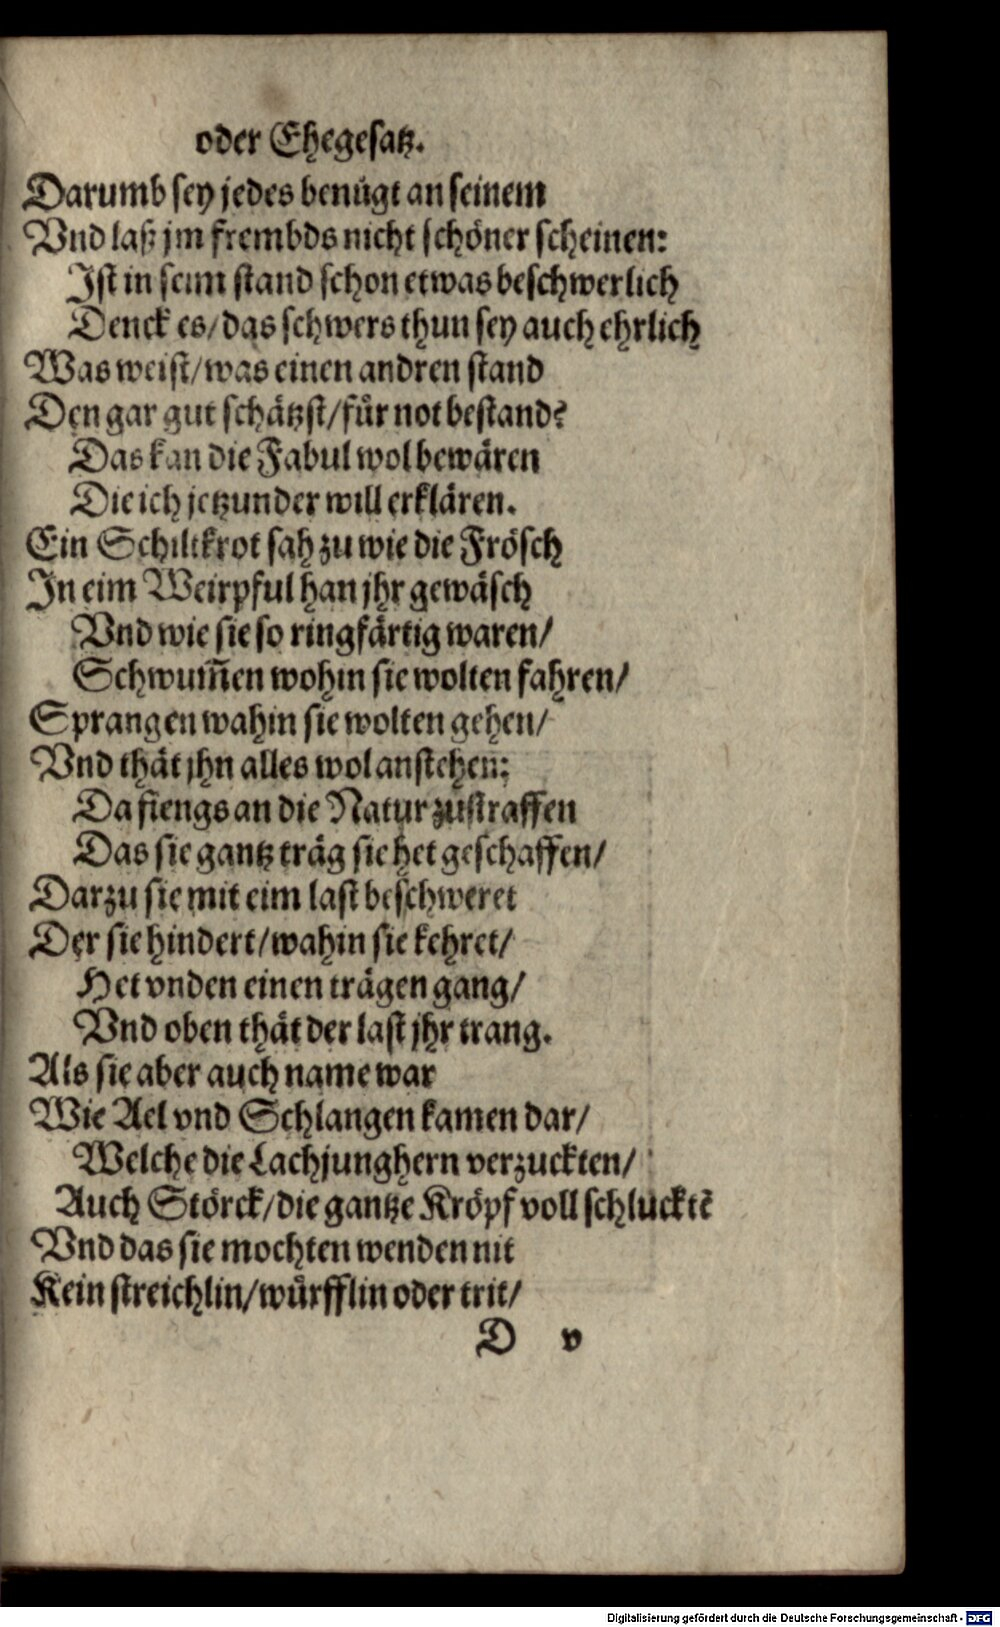 oder Ehegesatz.
Darumb sey jedes benügt an seinem
Vnd laß jm frembds nicht schöner scheinen:
Ist in seim stand schon etwas beschwerlich
Denck es/ das schwers thun sey auch ehrlich
Was weist/ was einen andren stand
Den gar gut schätzst/ für not bestand?
Das kan die Fabul wol bewären
Die ich jetzunder will erklären.
Ein Schiltkrot sah zu wie die Frösch
In eim Weirpful han jhr gewäsch
Vnd wie sie so ringfärtig waren/
Schwum̄en wohin sie wolten fahren/
Sprangen wahin sie wolten gehen/
Vnd thät jhn alles wol anstehen:
Da fiengs an die Natur zustraffen
Das sie gantz träg sie het geschaffen/
Darzu sie mit eim last beschweret
Der sie hindert/ wahin sie kehret/
Het vnden einen trägen gang/
Vnd oben thät der last jhr trang.
Als sie aber auch name war
Wie Ael vnd Schlangen kamen dar/
Welche die Lachjunghern verzuckten/
Auch Störck/ die gantze Kröpf voll schlucktē
Vnd das sie mochten wenden nit
Kein streichlin/ würfflin oder trit/
D v
Digitalisierung gefördert durch die Deutsche Forschungsgemeinschaft - DFG